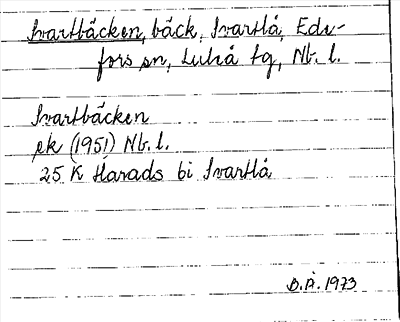 Svartbäcken, bäck, Svartlå, Ede-
fors sn, Luleå tg, Nb. l.
Svartbäcken
ek (1951) Nb. l.
25 K Harads bi Svartlå
B.Å. 1973